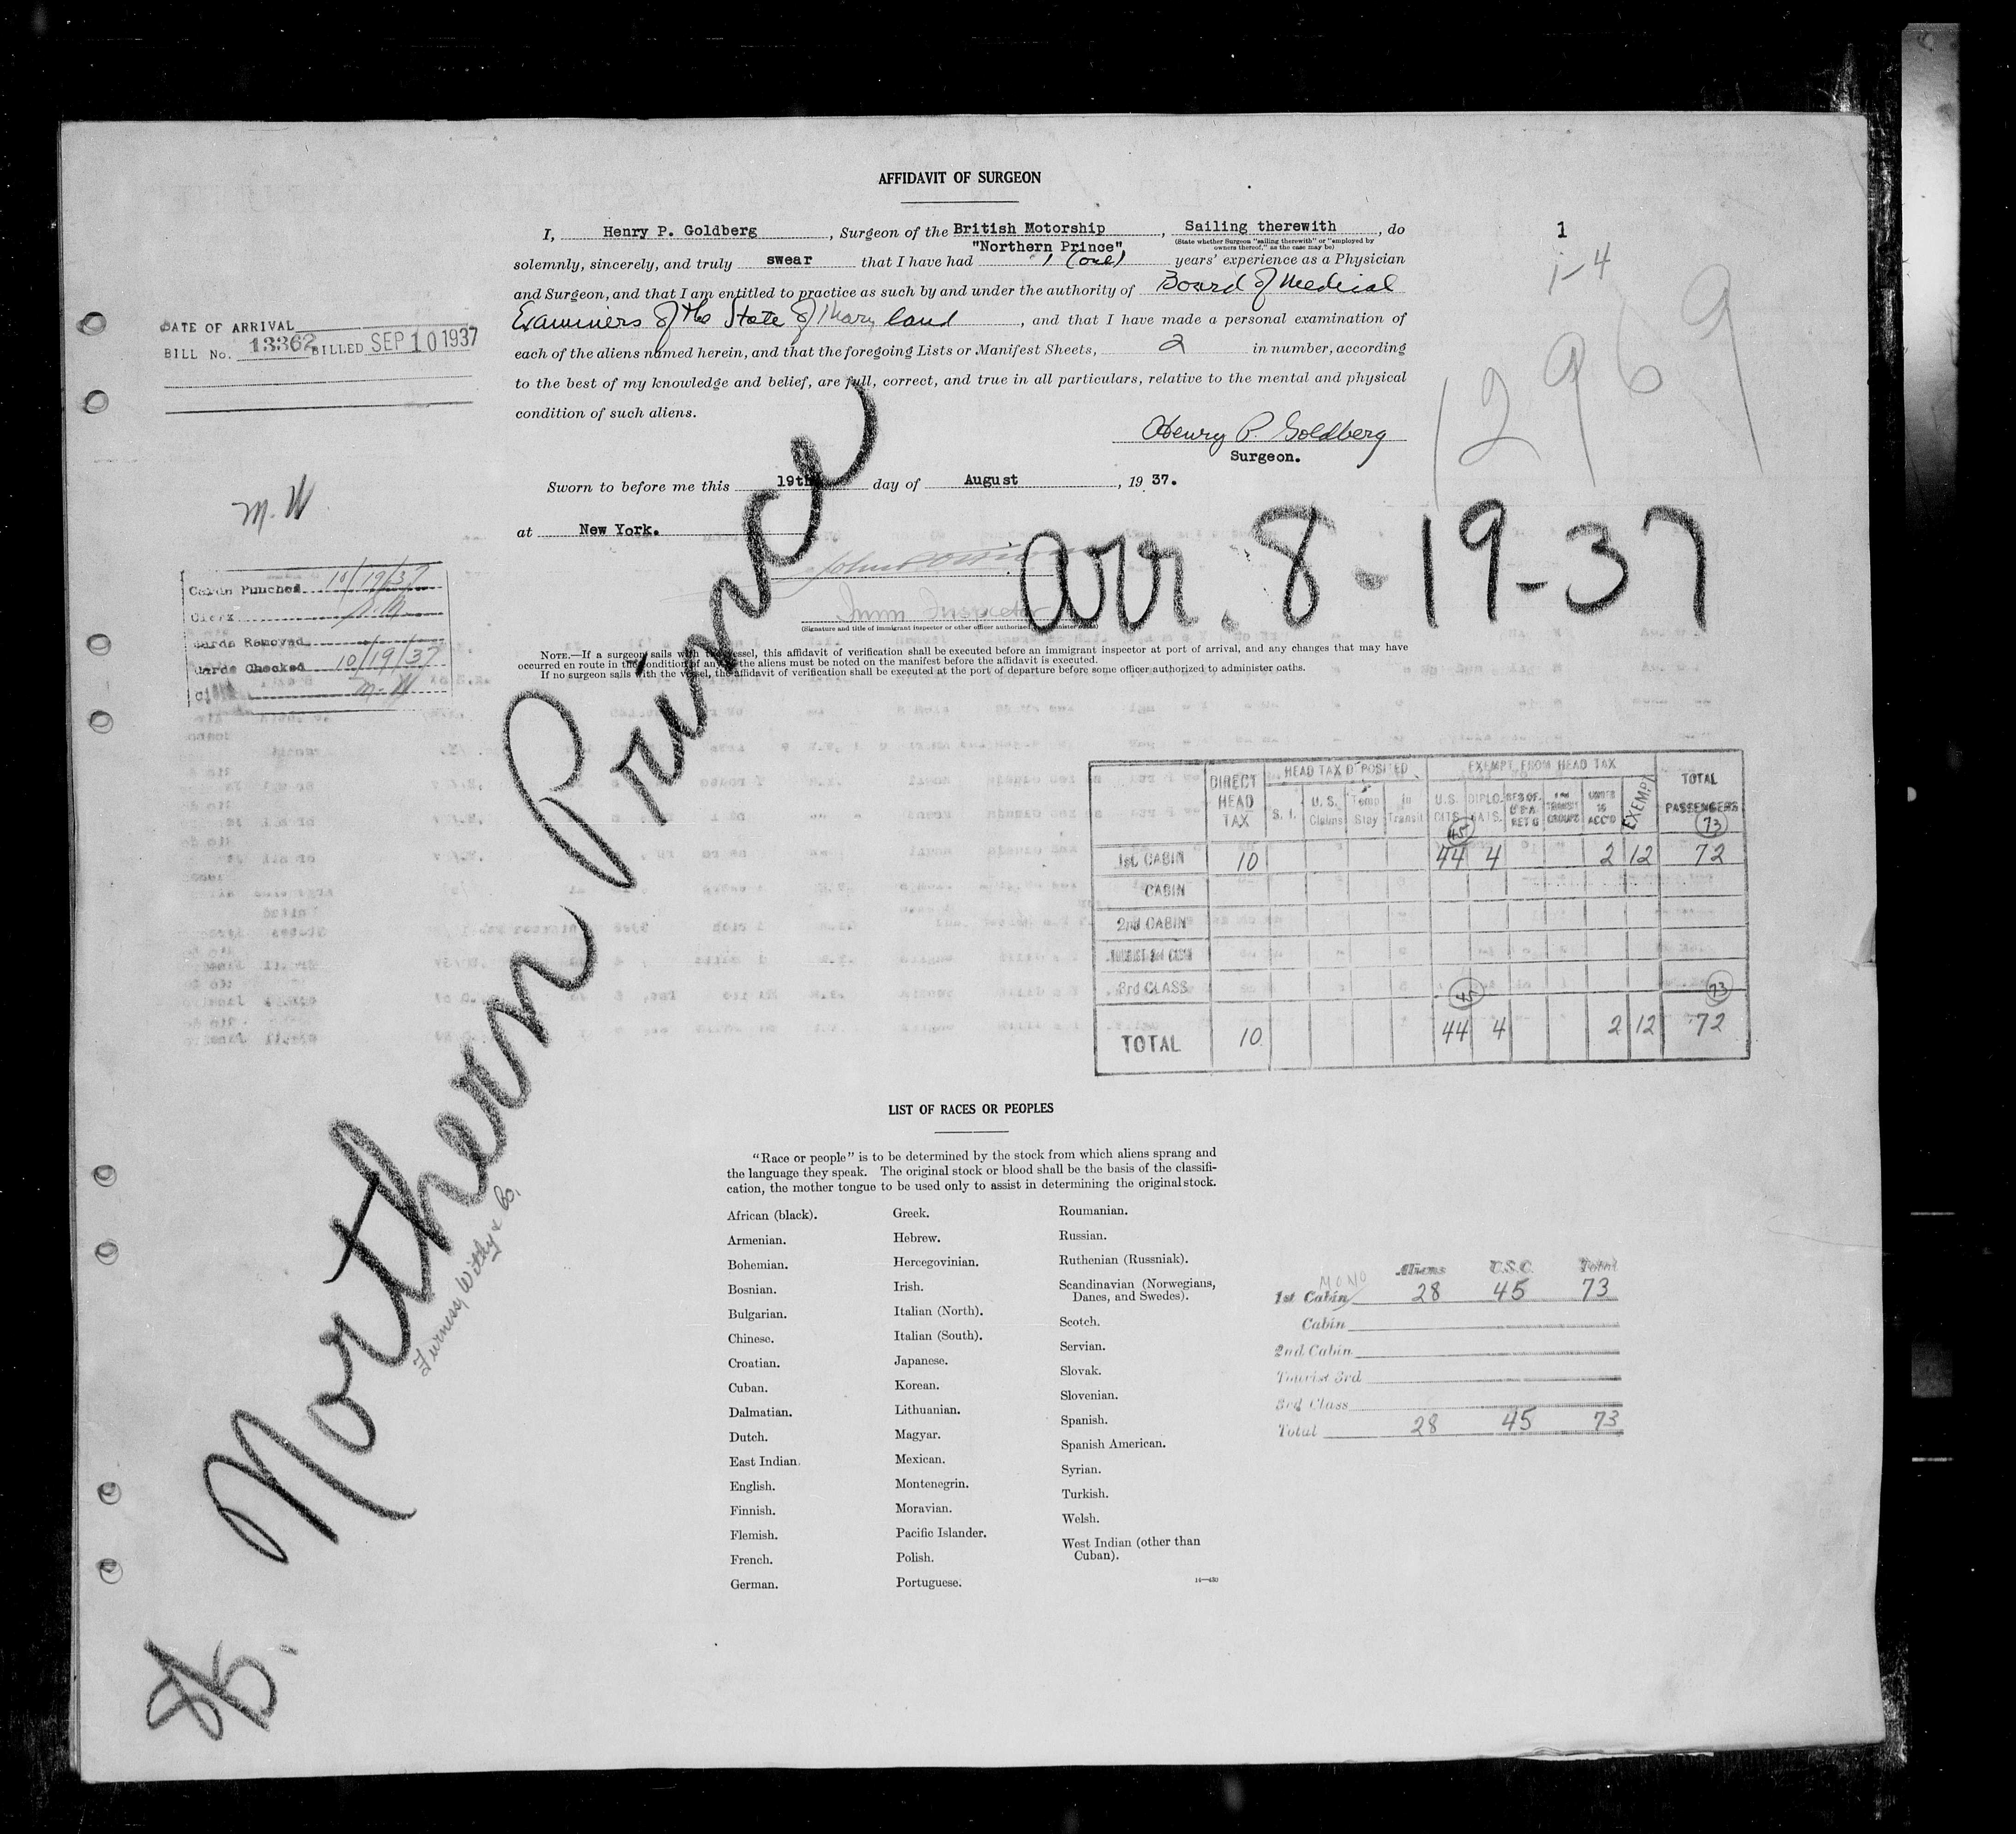 AFFIDAVIT OF SURGEON
I, Henry P. Goldberg, Surgeon of the British Motorship "Northern Prince", Sailing therewith, do
(State whether Surgeon "sailing therewith" or "employed by owners thereof," as the case may be)
solemnly, sincerely, and truly swear that I have had 1 (one) years' experience as a Physician
and Surgeon, and that I am entitled to practice as such by and under the authority of Board of Medical
Examiners of the State of Maryland, and that I have made a personal examination of
each of the aliens named herein, and that the foregoing Lists or Manifest Sheets, 2 in number, according
to the best of my knowledge and belief, are full, correct, and true in all particulars, relative to the mental and physical
condition of such aliens.
Henry P. Goldberg
Surgeon.
Sworn to before me this 19th day of August, 1937.
at New York.
Immi Inspector
(Signature and title of immigrant inspector or other officer authorized
NOTE.—If a surgeon sails with the vessel, this affidavit of verification shall be executed before an immigrant inspector at port of arrival, and any changes that may have
occurred en route in the condition of any of the aliens must be noted on the manifest before the affidavit is executed.
If no surgeon sails with the vessel, the affidavit of verification shall be executed at the port of departure before some officer authorized to administer oaths.
1
1-4
12969
arr. 8-19-37
DATE OF ARRIVAL
BILL No. 13362 BILLED SEP 10 1937
M. W
Cards Punched 10/19/37
Clerk
Cards Removed
Cards Checked 10/19/37
M. W
Northern Prince
Furness, Withy & Co.
DIRECT HEAD TAX
HEAD TAX DEPOSITED
EXEMPT FROM HEAD TAX
TOTAL PASSENGERS
S. I. U.S. Claims Temp Stay In Transit U.S. CITS. DIPLOMATS. RES OF. U S A RET'G TRANSIT GROUPS UNDER 16 ACC'D EXEMPT
45 73
1st CABIN 10 44 4 2 12 72
CABIN
2nd CABIN
TOURIST 3rd CABIN
3rd CLASS
45 73
TOTAL 10 44 4 2 12 72
LIST OF RACES OR PEOPLES
"Race or people" is to be determined by the stock from which aliens sprang and
the language they speak. The original stock or blood shall be the basis of the classifi-
cation, the mother tongue to be used only to assist in determining the original stock.
African (black).
Armenian.
Bohemian.
Bosnian.
Bulgarian.
Chinese.
Croatian.
Cuban.
Dalmatian.
Dutch.
East Indian.
English.
Finnish.
Flemish.
French.
German.
Greek.
Hebrew.
Hercegovinian.
Irish.
Italian (North).
Italian (South).
Japanese.
Korean.
Lithuanian.
Magyar.
Mexican.
Montenegrin.
Moravian.
Pacific Islander.
Polish.
Portuguese.
Roumanian.
Russian.
Ruthenian (Russniak).
Scandinavian (Norwegians,
Danes, and Swedes).
Scotch.
Servian.
Slovak.
Slovenian.
Spanish.
Spanish American.
Syrian.
Turkish.
Welsh.
West Indian (other than
Cuban).
14—430
Aliens U.S.C. Total
MONO
1st Cabin 28 45 73
Cabin
2nd Cabin
Tourist 3rd
3rd Class
Total 28 45 73